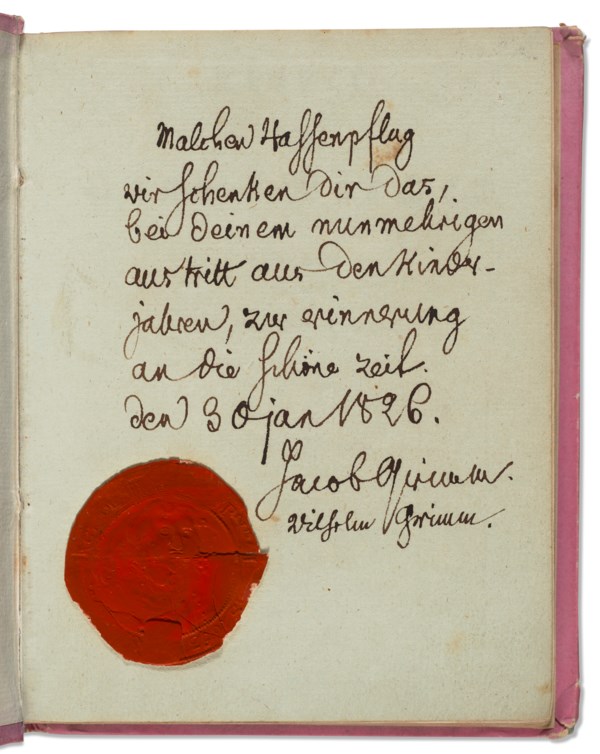 Malchen Hassenpflug
wir schenken dir das,
bei deinem nunmehrigen
austritt aus den Kinder-
jahren, zur erinnerung
an die schöne zeit.
den 30 jan 1826.
Jacob Grimm.
Wilhelm Grimm.